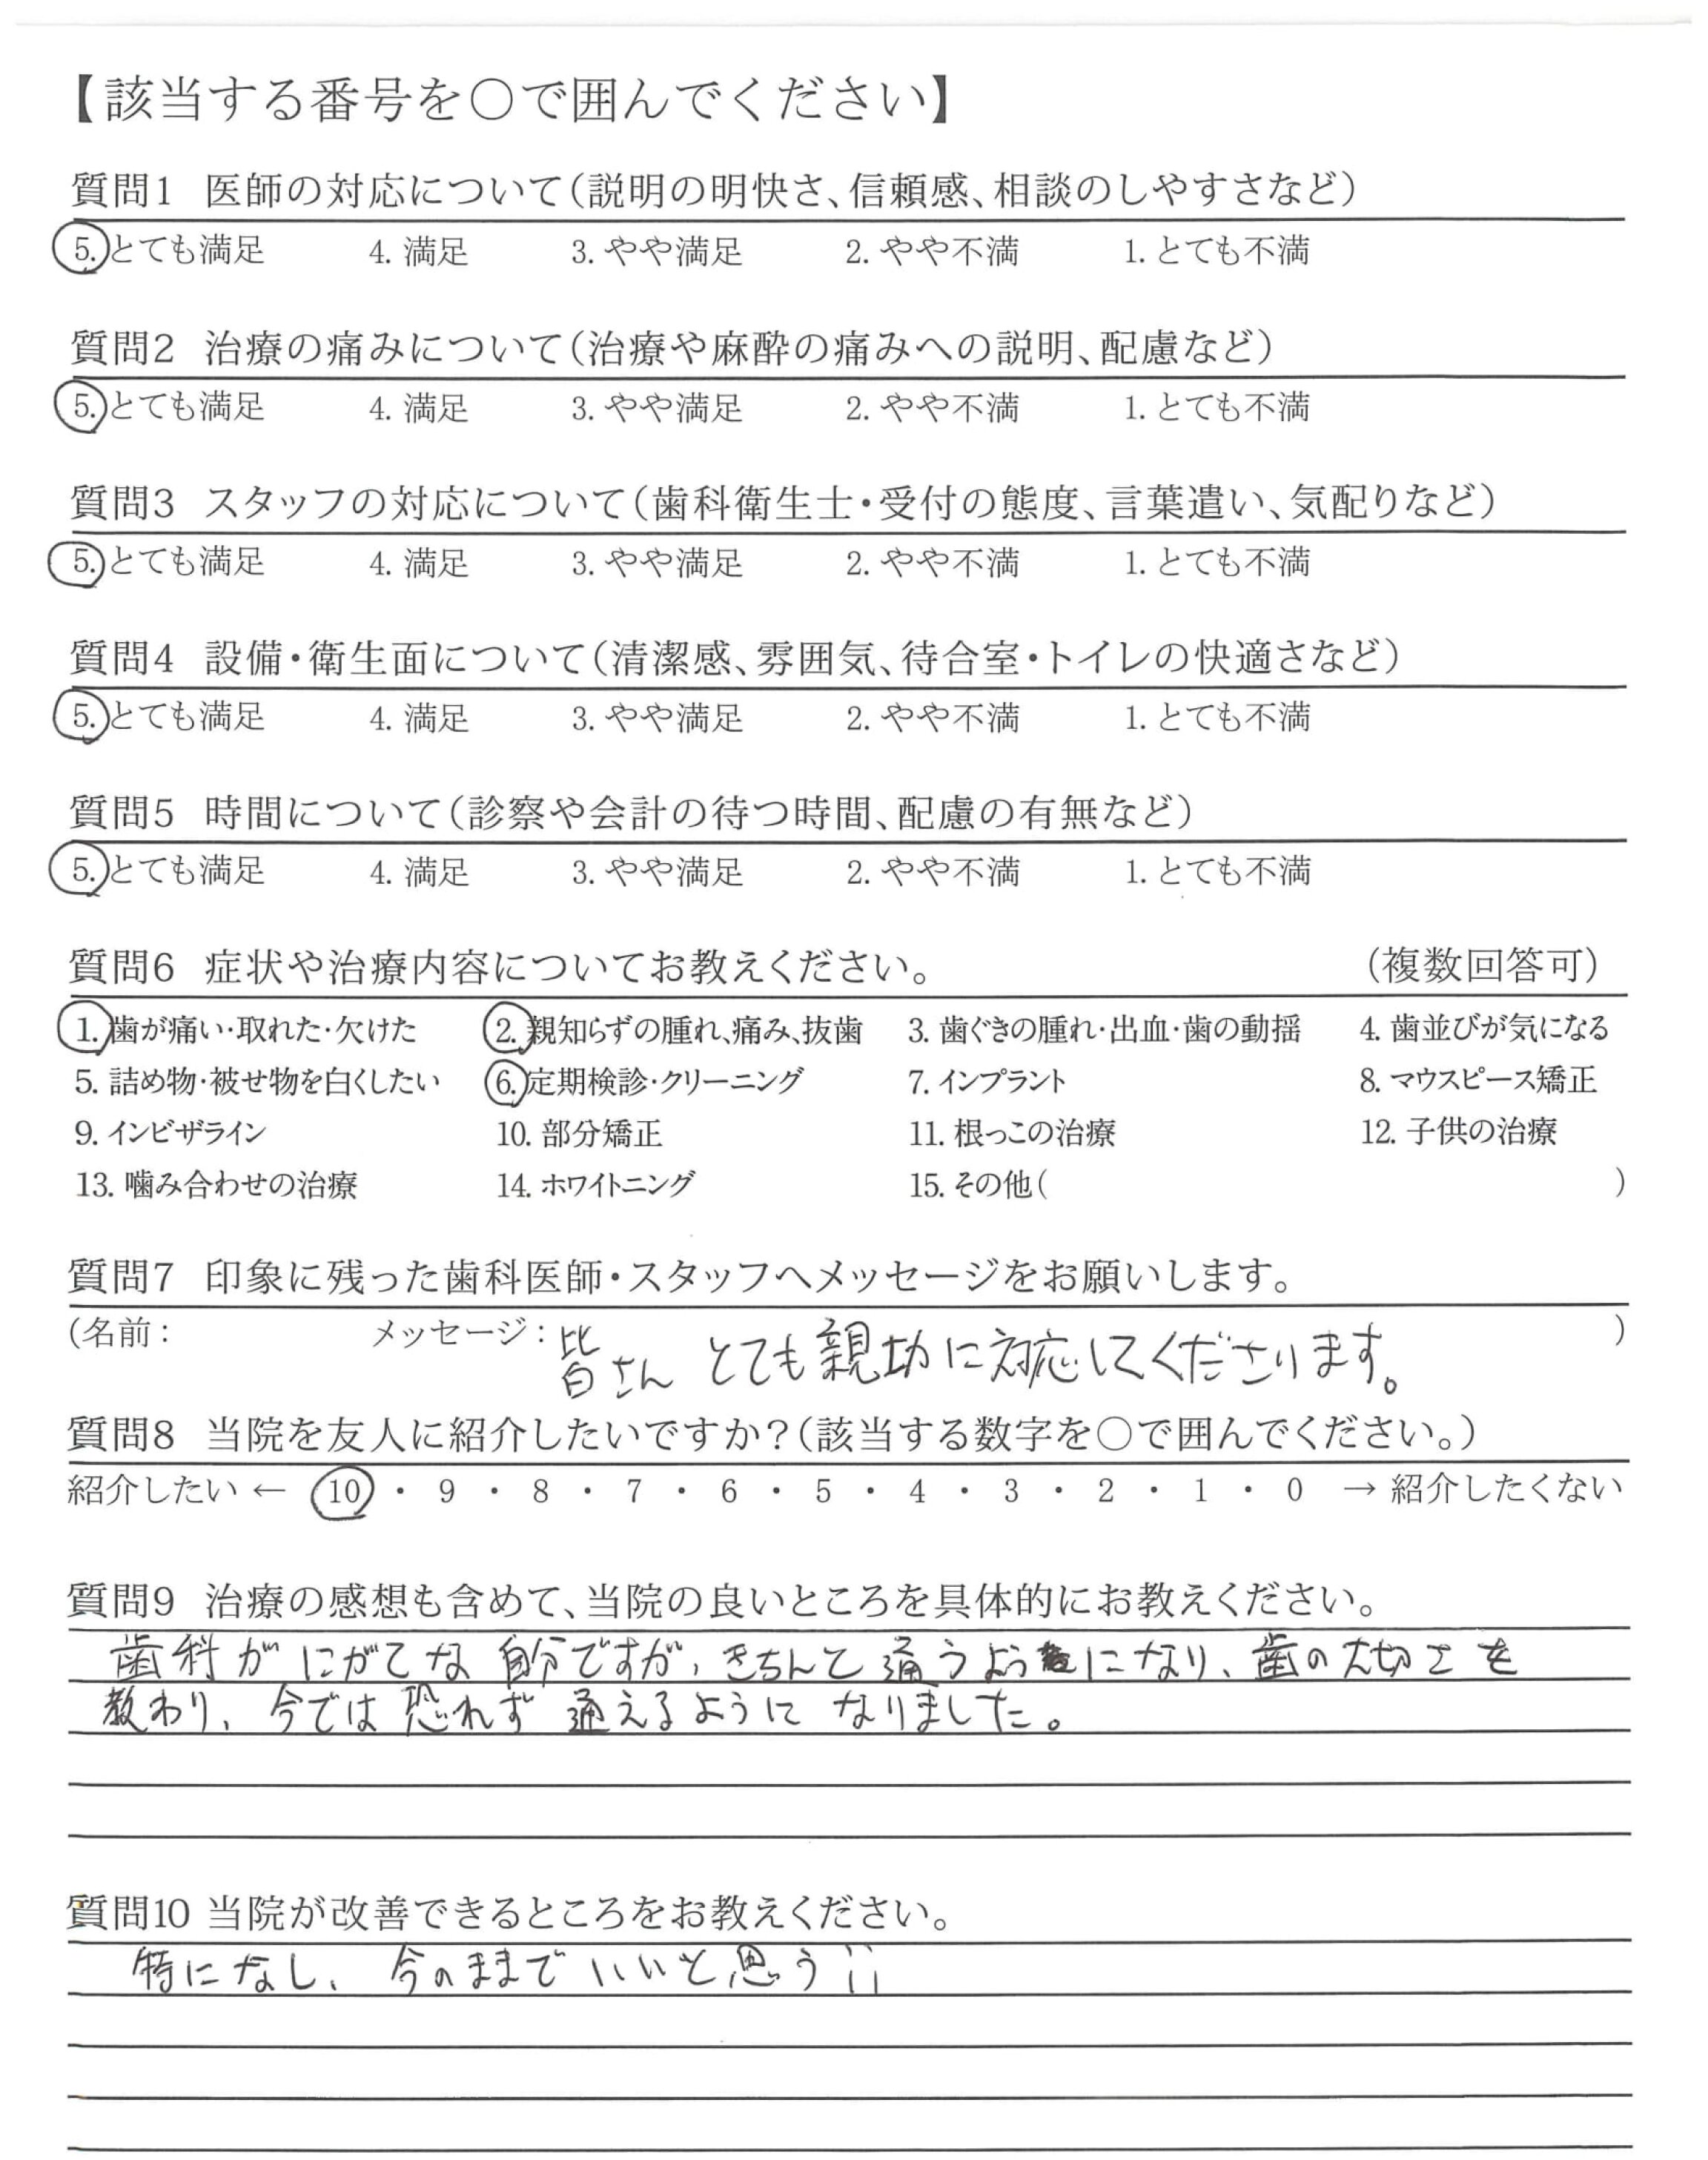 【該当する番号を〇で囲んでください】
質問1 医師の対応について(説明の明快さ、信頼感、相談のしやすさなど)
5. とても満足 4. 満足 3. やや満足 2. やや不満 1. とても不満
質問2 治療の痛みについて(治療や麻酔の痛みへの説明、配慮など)
5. とても満足 4. 満足 3. やや満足 2. やや不満 1. とても不満
質問3 スタッフの対応について(歯科衛生士・受付の態度、言葉遣い、気配りなど)
5. とても満足 4. 満足 3. やや満足 2. やや不満 1. とても不満
質問4 設備・衛生面について(清潔感、雰囲気、待合室・トイレの快適さなど)
5. とても満足 4. 満足 3. やや満足 2. やや不満 1. とても不満
質問5 時間について(診察や会計の待つ時間、配慮の有無など)
5. とても満足 4. 満足 3. やや満足 2. やや不満 1. とても不満
質問6 症状や治療内容についてお教えください。 (複数回答可)
1. 歯が痛い・取れた・欠けた 2. 親知らずの腫れ、痛み、抜歯 3. 歯ぐきの腫れ・出血・歯の動揺 4. 歯並びが気になる
5. 詰め物・被せ物を白くしたい 6. 定期検診・クリーニング 7. インプラント 8. マウスピース矯正
9. インビザライン 10. 部分矯正 11. 根っこの治療 12. 子供の治療
13. 噛み合わせの治療 14. ホワイトニング 15. その他( )
質問7 印象に残った歯科医師・スタッフへメッセージをお願いします。
(名前： メッセージ：皆さん とても親切に対応してくださります。 )
質問8 当院を友人に紹介したいですか？(該当する数字を〇で囲んでください。)
紹介したい ← 10 ・ 9 ・ 8 ・ 7 ・ 6 ・ 5 ・ 4 ・ 3 ・ 2 ・ 1 ・ 0 → 紹介したくない
質問9 治療の感想も含めて、当院の良いところを具体的にお教えください。
歯科がにがてな自分ですが、きちんと通うようになり、歯の大切さを
教わり、今では恐れず通えるようになりました。
質問10 当院が改善できるところをお教えください。
特になし、今のままでいいと思う!!